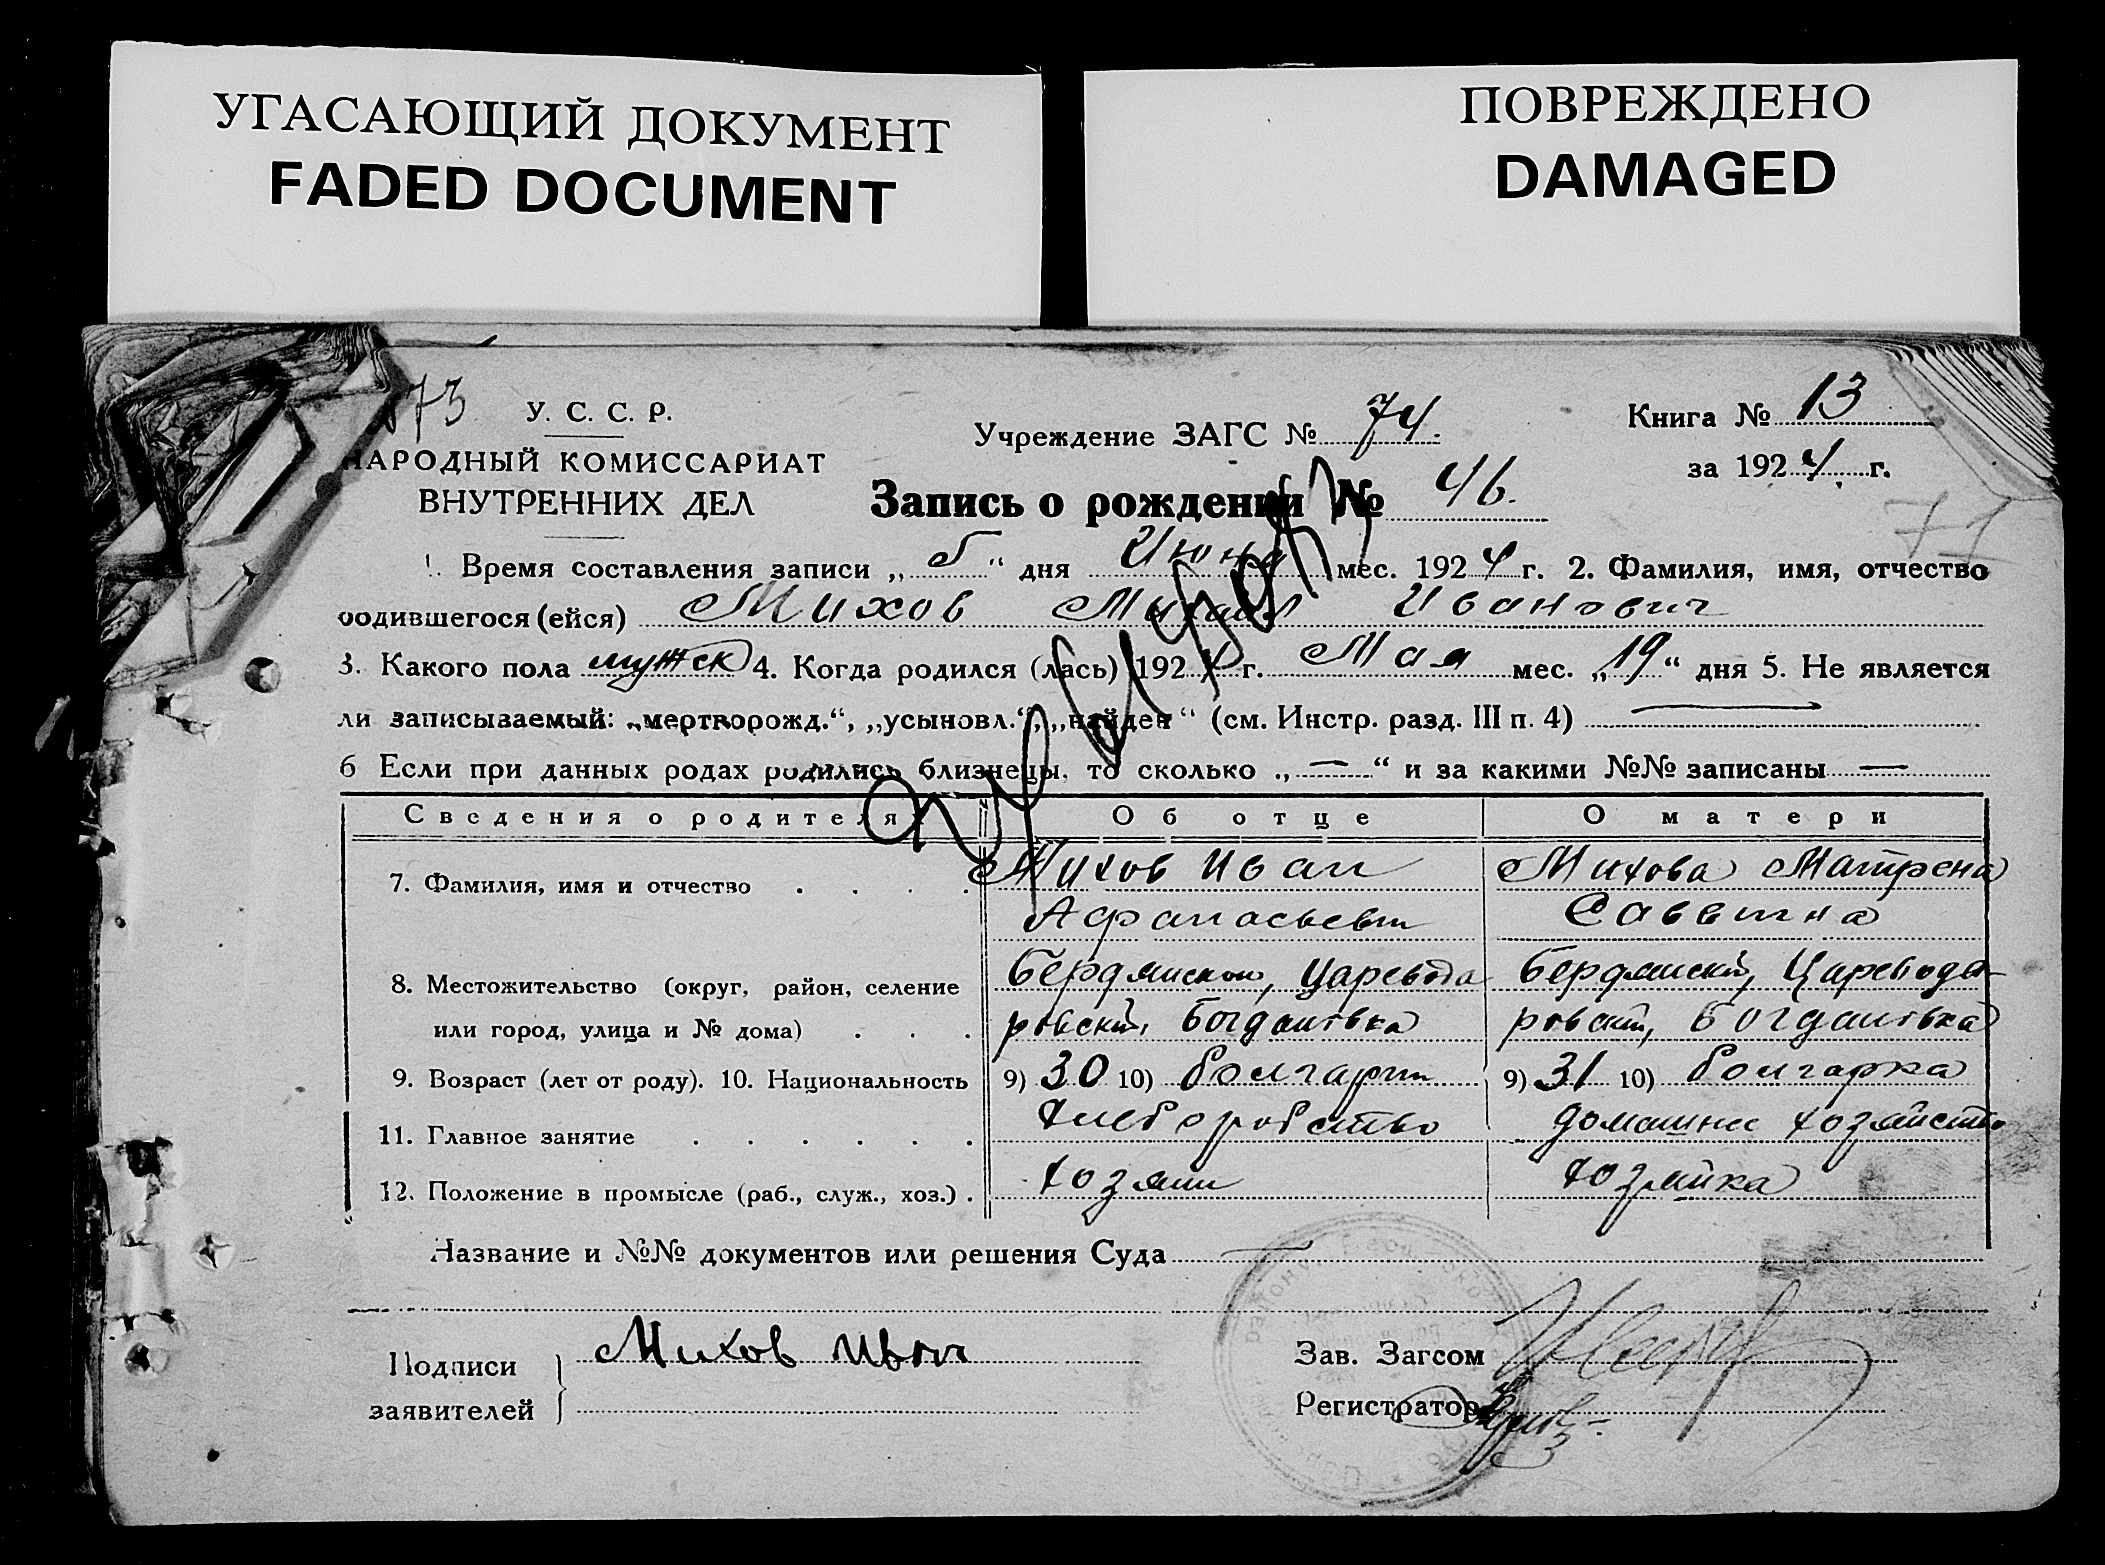 УГАСАЮЩИЙ ДОКУМЕНТ
FADED DOCUMENT
ПОВРЕЖДЕНО
DAMAGED
73
У. С. С. Р.
НАРОДНЫЙ КОМИССАРИАТ
ВНУТРЕННИХ ДЕЛ
Учреждение ЗАГС № 74.
Книга № 13
за 1924 г.
Запись о рождении № 46.
71
1. Время составления записи „5“ дня Июня мес. 1924 г. 2. Фамилия, имя, отчество
родившегося (ейся) Михов Михаил Иванович
3. Какого пола мужск 4. Когда родился (лась) 1924 г. Мая мес. „19“ дня 5. Не является
ли записываемый: „мертворожд.“, „усыновл.“, „найден“ (см. Инстр. разд. III п. 4) —
6 Если при данных родах родились близнецы, то сколько „—“ и за какими №№ записаны —
Сведения о родителях Об отце О матери
7. Фамилия, имя и отчество Михов Иван Михова Матрена
Афанасьевич Саввична
8. Местожительство (округ, район, селение Бердянский, Царевода Бердянский, Царевода-
или город, улица и № дома) ровский, Богдановка ровский, Богдановка
9. Возраст (лет от роду). 10. Национальность 9) 30 10) болгарин 9) 31 10) болгарка
11. Главное занятие хлеборобство домашнее хозяйство
12. Положение в промысле (раб., служ., хоз.) хозяин хозяйка
Название и №№ документов или решения Суда —
Подписи Михов Иван
заявителей
Зав. Загсом
Регистратор